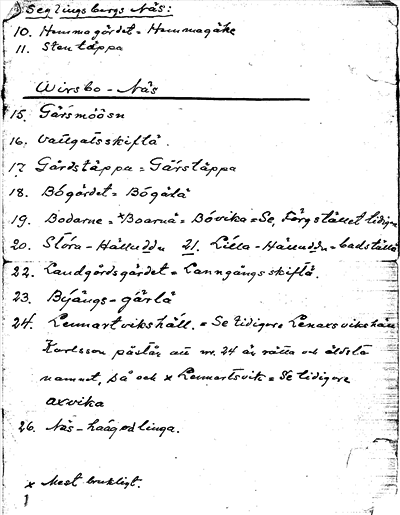 Seglingsbergs Näs:
10. Hemmagärdet = Hemmagäke
11. Stentäppa
Wirsbo - Näs
15. Gärsmöösn
16. Vallgatsskiftä.
17 Gårdstäppa = Gårstäppa
18. Bógärdet = Bógälä
19. Bodarne = xBoarnä = Bóvika = Se, Färgstället tidigare
20. Stóra - Hälludden 21. Lilla - Hälludden = badställe
22. Landgårdsgärdet = Lanngångsskiftä.
23. Býängs - gärlä
24. Lennartvikshäll. = Se tidigare Lenarsvikshäll
Karlsson påstår att nr. 24 är rätta och äldsta
namnet, så och x Lennartsvik = Se tidigare
axvika
26. Näs - haagedlinga.
x Mest brukligt.